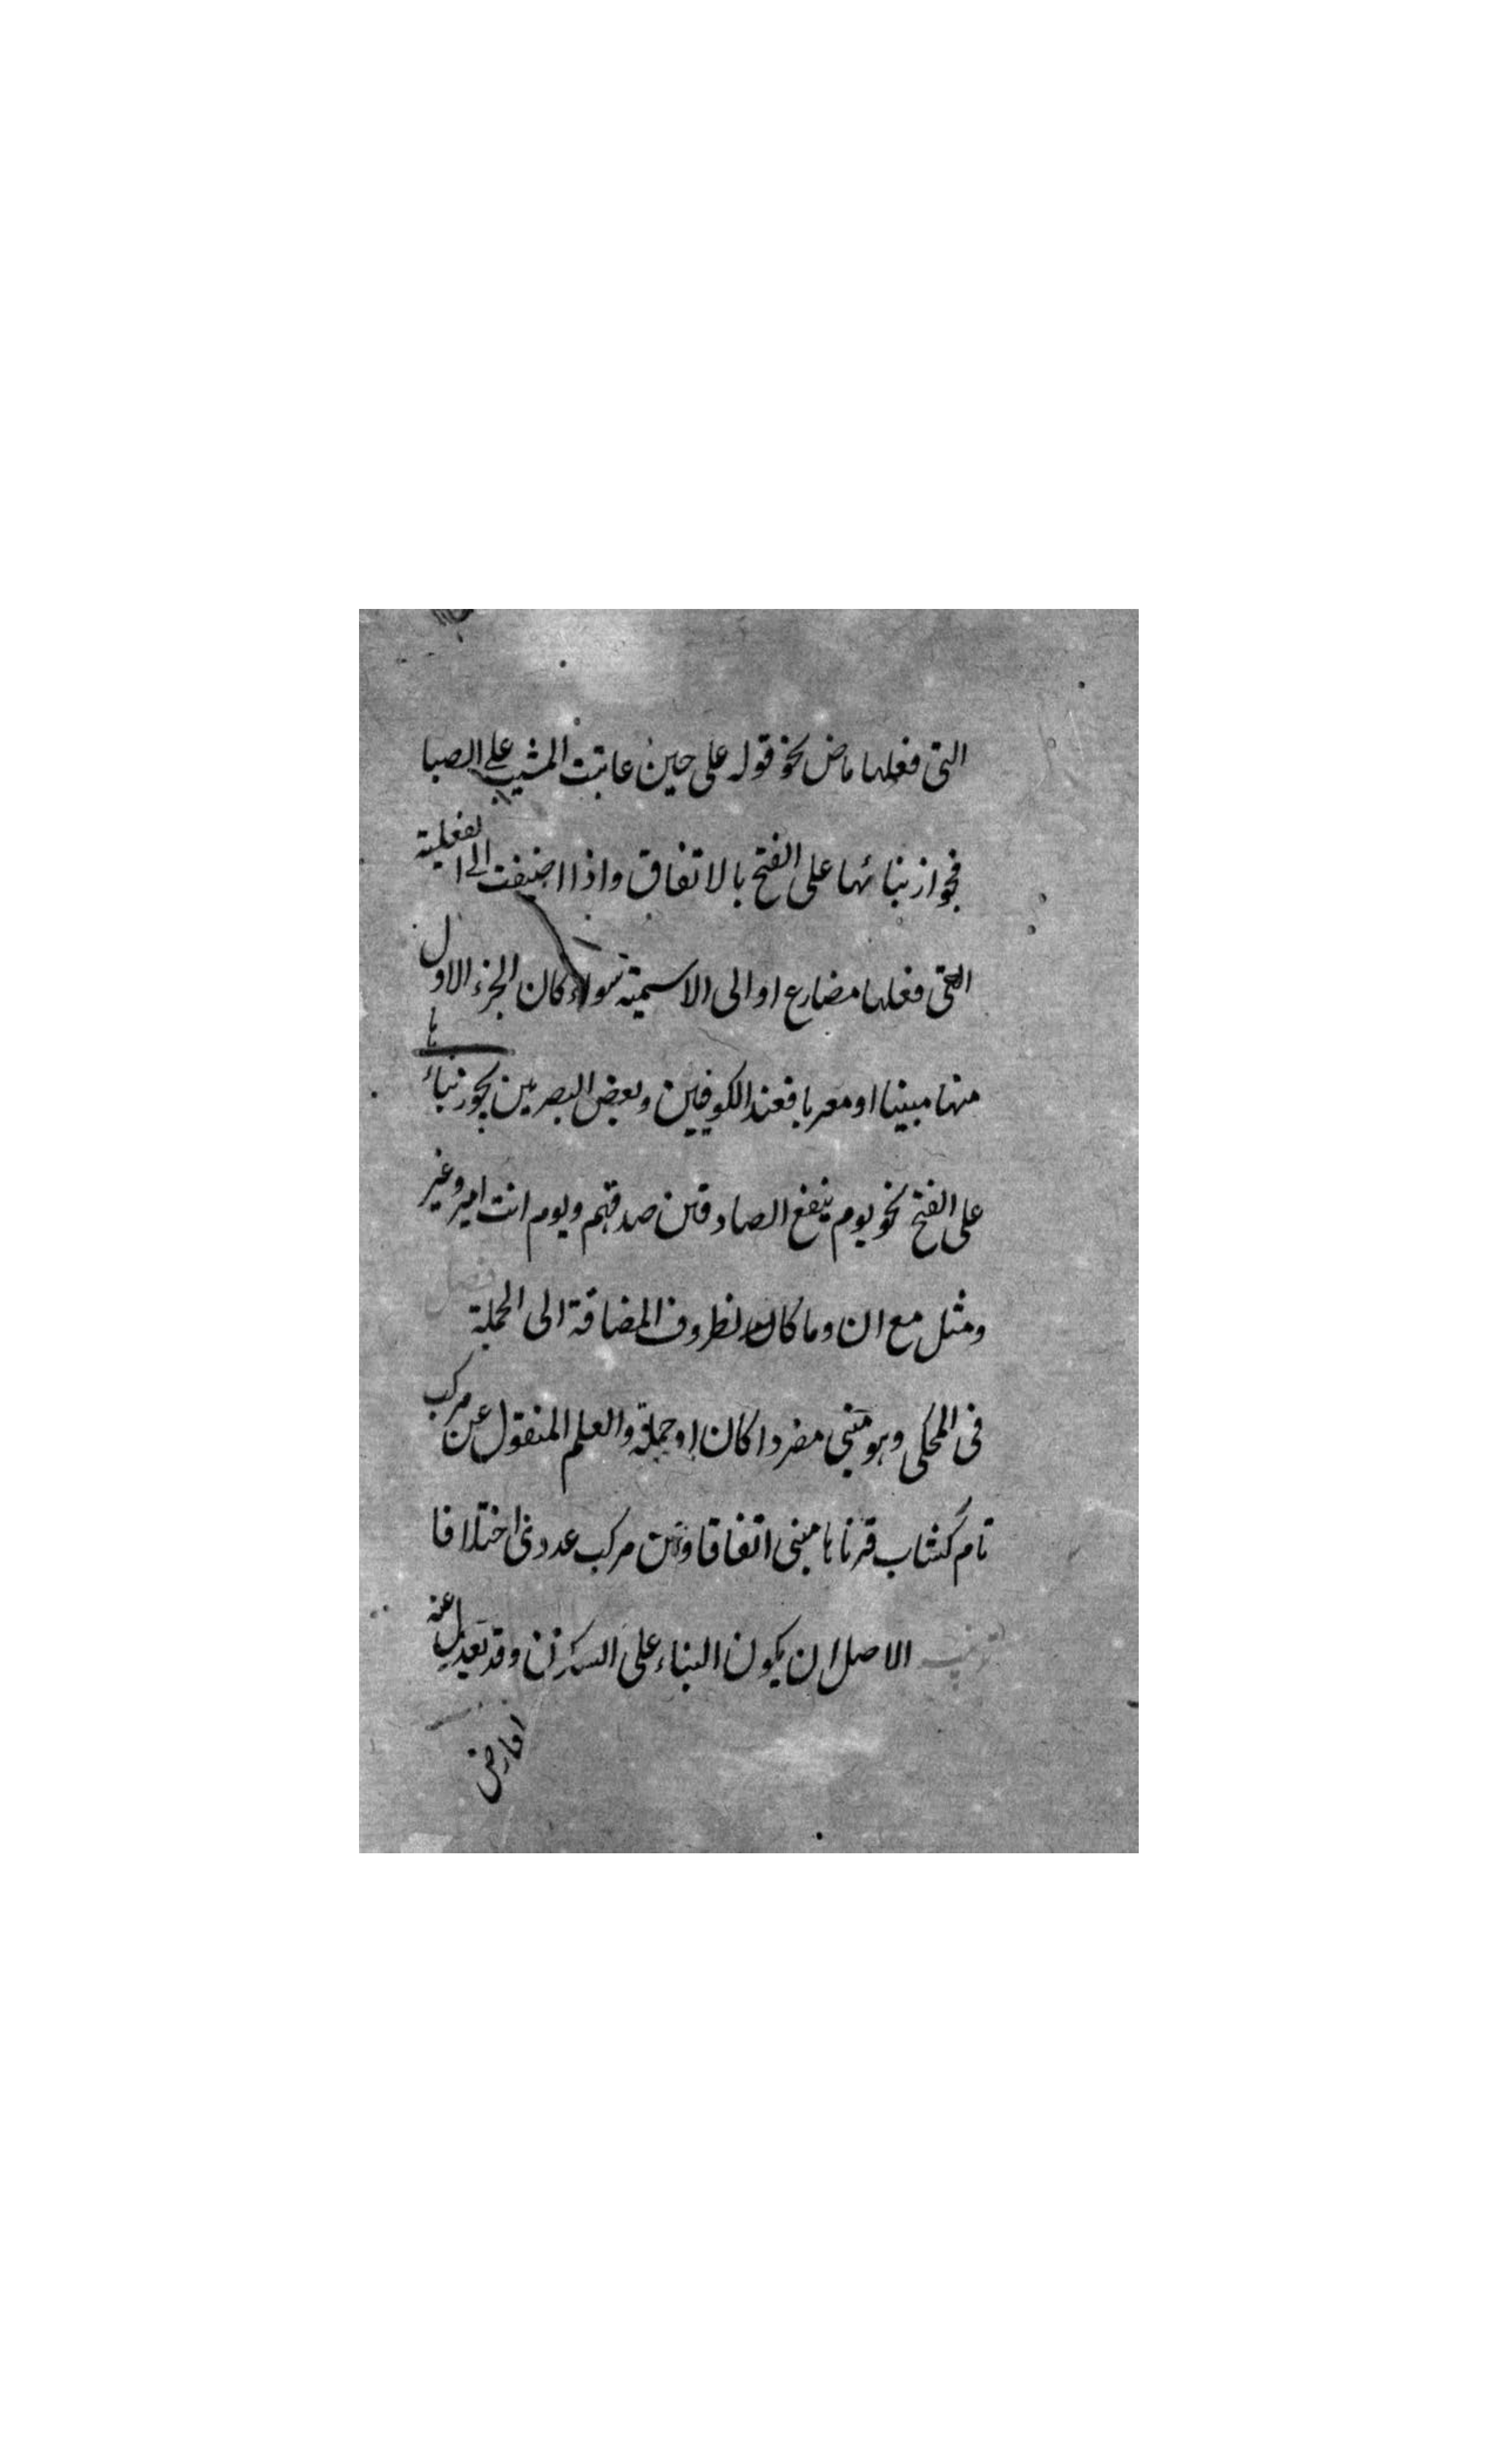 التى فعلها ماض نحو قوله على حين عاتبت المشيب على الصبا
فجواز بنائها على الفتح بالاتفاق واذا اضيفت الى الفعلية
التى فعلها مضارع او الى الاسمية سواء كان الجزء الاول
منها مبينا او معربا فعند الكوفيين وبعض البصريين يجوز بناءها
على الفتح نحو يوم ينفع الصادقين صدقهم ويوم انت امير وغير
ومثل مع ان وما كالظروف المضافة الى الجملة
فصل
فى المحكى وهو مبنى مفردا كان او جملة والعلم المنقول عن مركب
تام كشاب قرناها مبنى اتفاقا وعن مركب عددى اختلافا
الاصل ان يكون البناء على السكون وقد يعدل عنه
لعارض